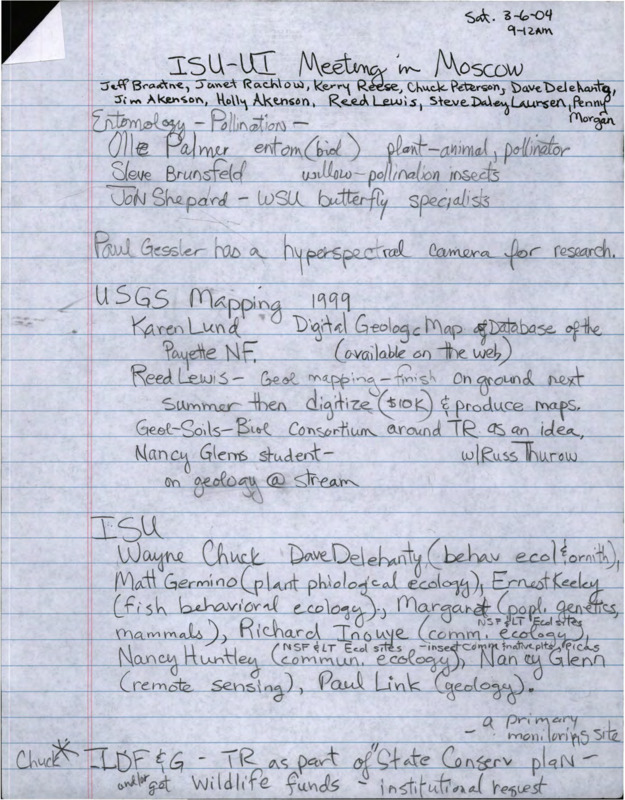 Sat. 3-6-04
9-12AM
ISU-UI Meeting in Moscow
Jeff Braatne, Janet Rachlow, Kerry Reese, Chuck Peterson, Dave Delehanty,
Jim Akenson, Holly Akenson, Reed Lewis, Steve Daley Laursen, Penny
Morgan
Entomology - Pollination -
Olle Palmer entom(biol) plant-animal, pollinator
Steve Brunsfeld willow-pollination insects
Jon Shepard - WSU butterfly specialists
Paul Gessler has a hyperspectral camera for research.
USGS Mapping 1999
Karen Lund Digital Geologic Map & Database of the
Payette NF. (available on the web)
Reed Lewis - Geol mapping - finish on ground next
summer then digitize ($10K) & produce maps.
Geol-Soils-Biol Consortium around TR as an idea,
Nancy Glenns student - w/Russ Thurow
on geology @ stream
ISU
Wayne Chuck Dave Delehanty (behav ecol & ornith),
Matt Germino (plant phiological ecology), Ernest Keeley
(fish behavioral ecology), Margaret (popl. genetics,
NSF & LT Ecol sites
mammals), Richard Inouye (comm. ecology),
NSF & LT Ecol sites - insect comm
Nancy Huntley (commun. ecology), Nancy Glenn
(remote sensing), Paul Link (geology).
- a primary
monitoring site
Chuck* IDF & G - TR as part of "State Conserv plan -
and/or got Wildlife funds - institutional request